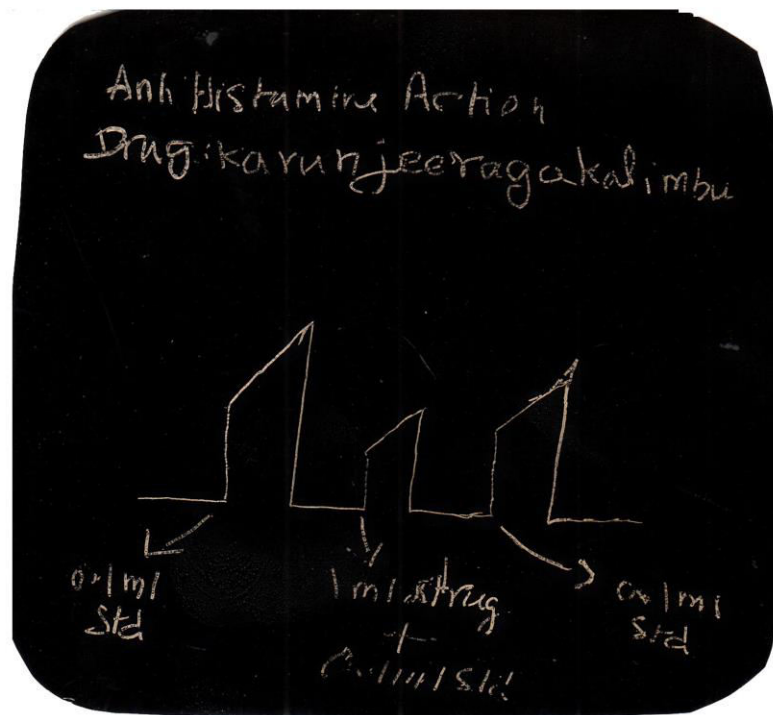 Anti Histamine Action
Drug: karunjeeragakalimbu
0.1ml
Std
1ml drug
+
0.1ml Std
0.1ml
Std